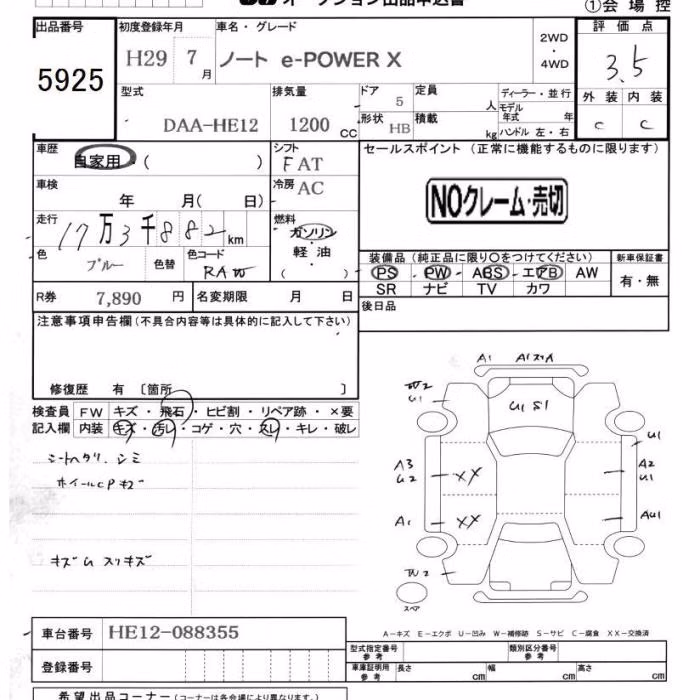 オークション出品申込書
①会場控
出品番号 初度登録年月 車名・グレード 2WD・4WD 評価点
5925 H29 7月 ノート e-POWER X 3.5
型式 排気量 ドア 定員 ディーラー・並行 外装 内装
DAA-HE12 1200cc 5 人 モデル年式 年 C C
形状 HB 積載 kg ハンドル 左・右
車歴 自家用・( ) シフト FAT セールスポイント (正常に機能するものに限ります)
車検 年 月( 日) 冷房 AC NOクレーム・売切
走行 17万3千882km 燃料 ガソリン・軽油 ( )
色 ブルー 色替 色コード RAW
装備品 (純正品に限り○をつけてください) 新車保証書
PS・PW・ABS・エアB AW 有・無
SR ナビ TV カワ
R券 7,890円 名変期限 月 日 後日品
注意事項申告欄(不具合内容等は具体的に記入して下さい)
修復歴 有 〔箇所 〕
検査員 FW キズ・飛石・ヒビ割・リペア跡・×要
記入欄 内装 キズ・汚レ・コゲ・穴・スレ・キレ・破レ
シートヘタリ、シミ
ホイールCPキズ
スリキズ
A1
U1 S1
U1
U1
A3 U2 XX A2 U1
A1 XX AU1
W2
スペア
A-キズ E-エクボ U-凹み W-補修跡 S-サビ C-腐食 XX-交換済
車台番号 HE12-088355
型式指定番号 参考 類別区分番号 参考
登録番号 車庫証明用 参考 長さ cm 幅 cm 高さ cm
希望出品コーナー (コーナーは各会場により異なります。)